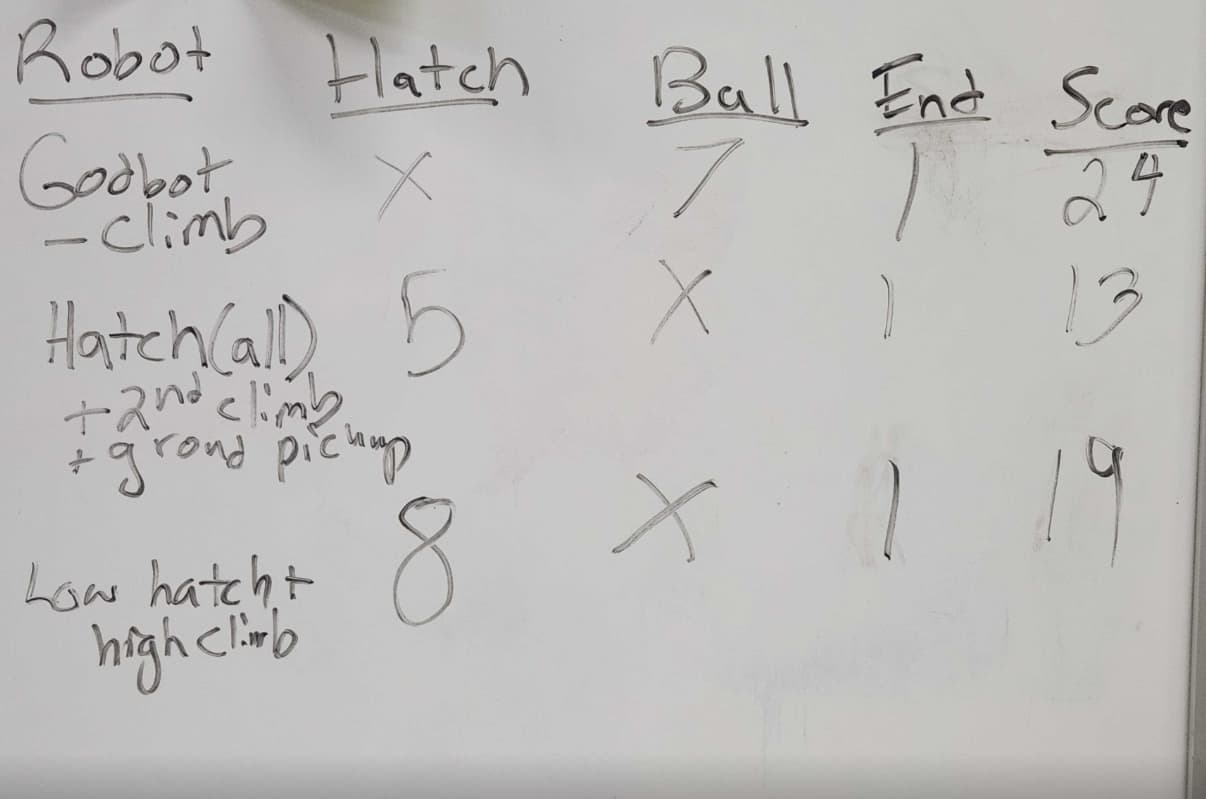 Robot Hatch Ball End Score
Godbot X 7 1 24
- climb
Hatch(all) 5 X 1 13
+ 2nd climb
+ grond pickup
Low hatch + 8 X 1 19
high climb